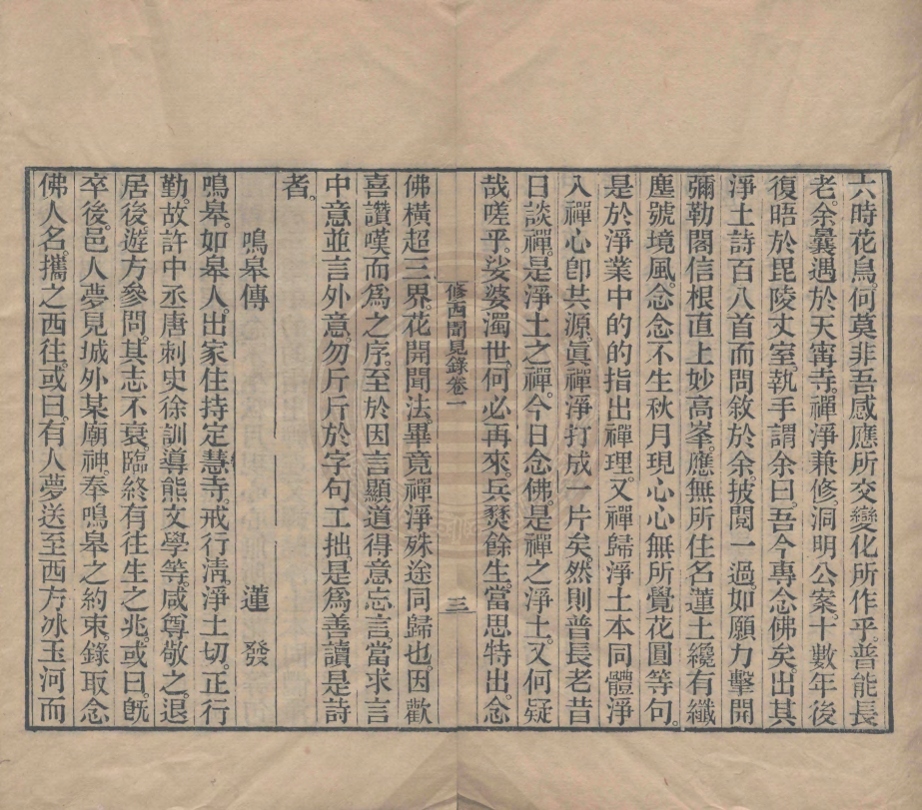 六時花鳥。何莫非吾感應所交變化所作乎。普能長
老。余曩遇於天甯寺。禪淨兼修。洞明公案。十數年後
復晤於毘陵丈室。執手謂余曰。吾今專念佛矣。出其
淨土詩百八首而問敘於余。披閱一過。如願力擊開
彌勒閣。信根直上妙高峯。應無所住名蓮土。纔有纖
塵號境風。念念不生秋月現。心心無所覺花圓等句。
是於淨業中的的指出禪理。又禪歸淨土本同體。淨
入禪心卽共源。眞禪淨打成一片矣。然則普長老昔
日談禪。是淨土之禪。今日念佛。是禪之淨土。又何疑
哉。嗟乎。娑婆濁世。何必再來。兵燹餘生。當思特出。念
修西聞見錄卷一
三
佛橫超三界。花開聞法。畢竟禪淨殊途同歸也。因歡
喜讚嘆而爲之序。至於因言顯道。得意忘言。當求言
中意並言外意。勿斤斤於字句工拙。是爲善讀是詩
者。
鳴皋傳 蓮發
鳴皋。如皋人。出家住持定慧寺。戒行淸。淨土切。正行
勤。故許中丞唐刺史徐訓導熊文學等。咸尊敬之。退
居後。遊方參問。其志不衰。臨終有往生之兆。或曰。旣
卒後。邑人夢見城外某廟神。奉鳴皋之約束。錄取念
佛人名。攜之西往。或曰。有人夢送至西方冰玉河而